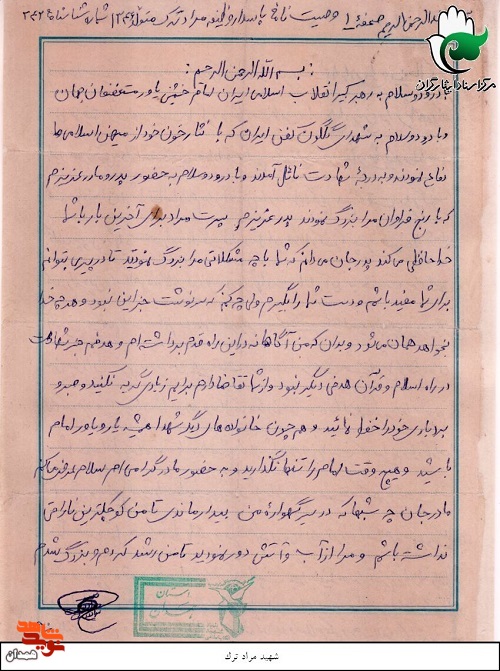 بسم الله الرحمن الرحیم صفحهٔ ۱ وصیت نامهٔ پاسدار وظیفه مراد ترک متولد ۱۳۴۶ شماره شناسنامه ۳۴۲۶
مرکز اسناد ایثارگران
: بسم الله الرحمن الرحیم :
با درود و سلام به رهبر کبیر انقلاب اسلامی ایران امام خمینی یاور مستضعفان جهان
و با درود و سلام به شهدای گلگون کفن ایران که با نثار خون خود از میهن اسلامی ما
دفاع نمودند و به درجهٔ شهادت نائل آمدند و با درود و سلام به حضور پدر و مادر عزیزم
که با رنج فراوان مرا بزرگ نمودند پدر عزیزم پسرت مراد برای آخرین بار با شما
خداحافظی می کند پدر جان می دانم که شما با چه مشکلاتی مرا بزرگ نمودید تا در پیری بتوانم
برای شما مفید باشم و دست شما را بگیرم ولی چه کنم که سرنوشت جز این نبود و هر چه خدا
بخواهد همان می شود و بدان که من آگاهانه در این راه قدم برداشته ام و هدفم جز شهادت
در راه اسلام و قرآن هدفی دیگر نبود و از شما تقاضا دارم برایم زیادی گریه نکنید و صبر و
بردباری خود را حفظ نمائید و هم چون خانواده های دیگر شهدا همیشه یار و یاور امام
باشید و هیچ وقت امام را تنها نگذارید و به حضور مادر گرامی ام سلام عرض می کنم
مادر جان چه شبها که در سر گهوارهٔ من بیدار ماندی تا من کوچکترین ناراحتی
نداشته باشم و مرا از آب و آتش دور نمودید تا من رشد کردم و بزرگ شدم
استان
همدان
شهید مراد ترک